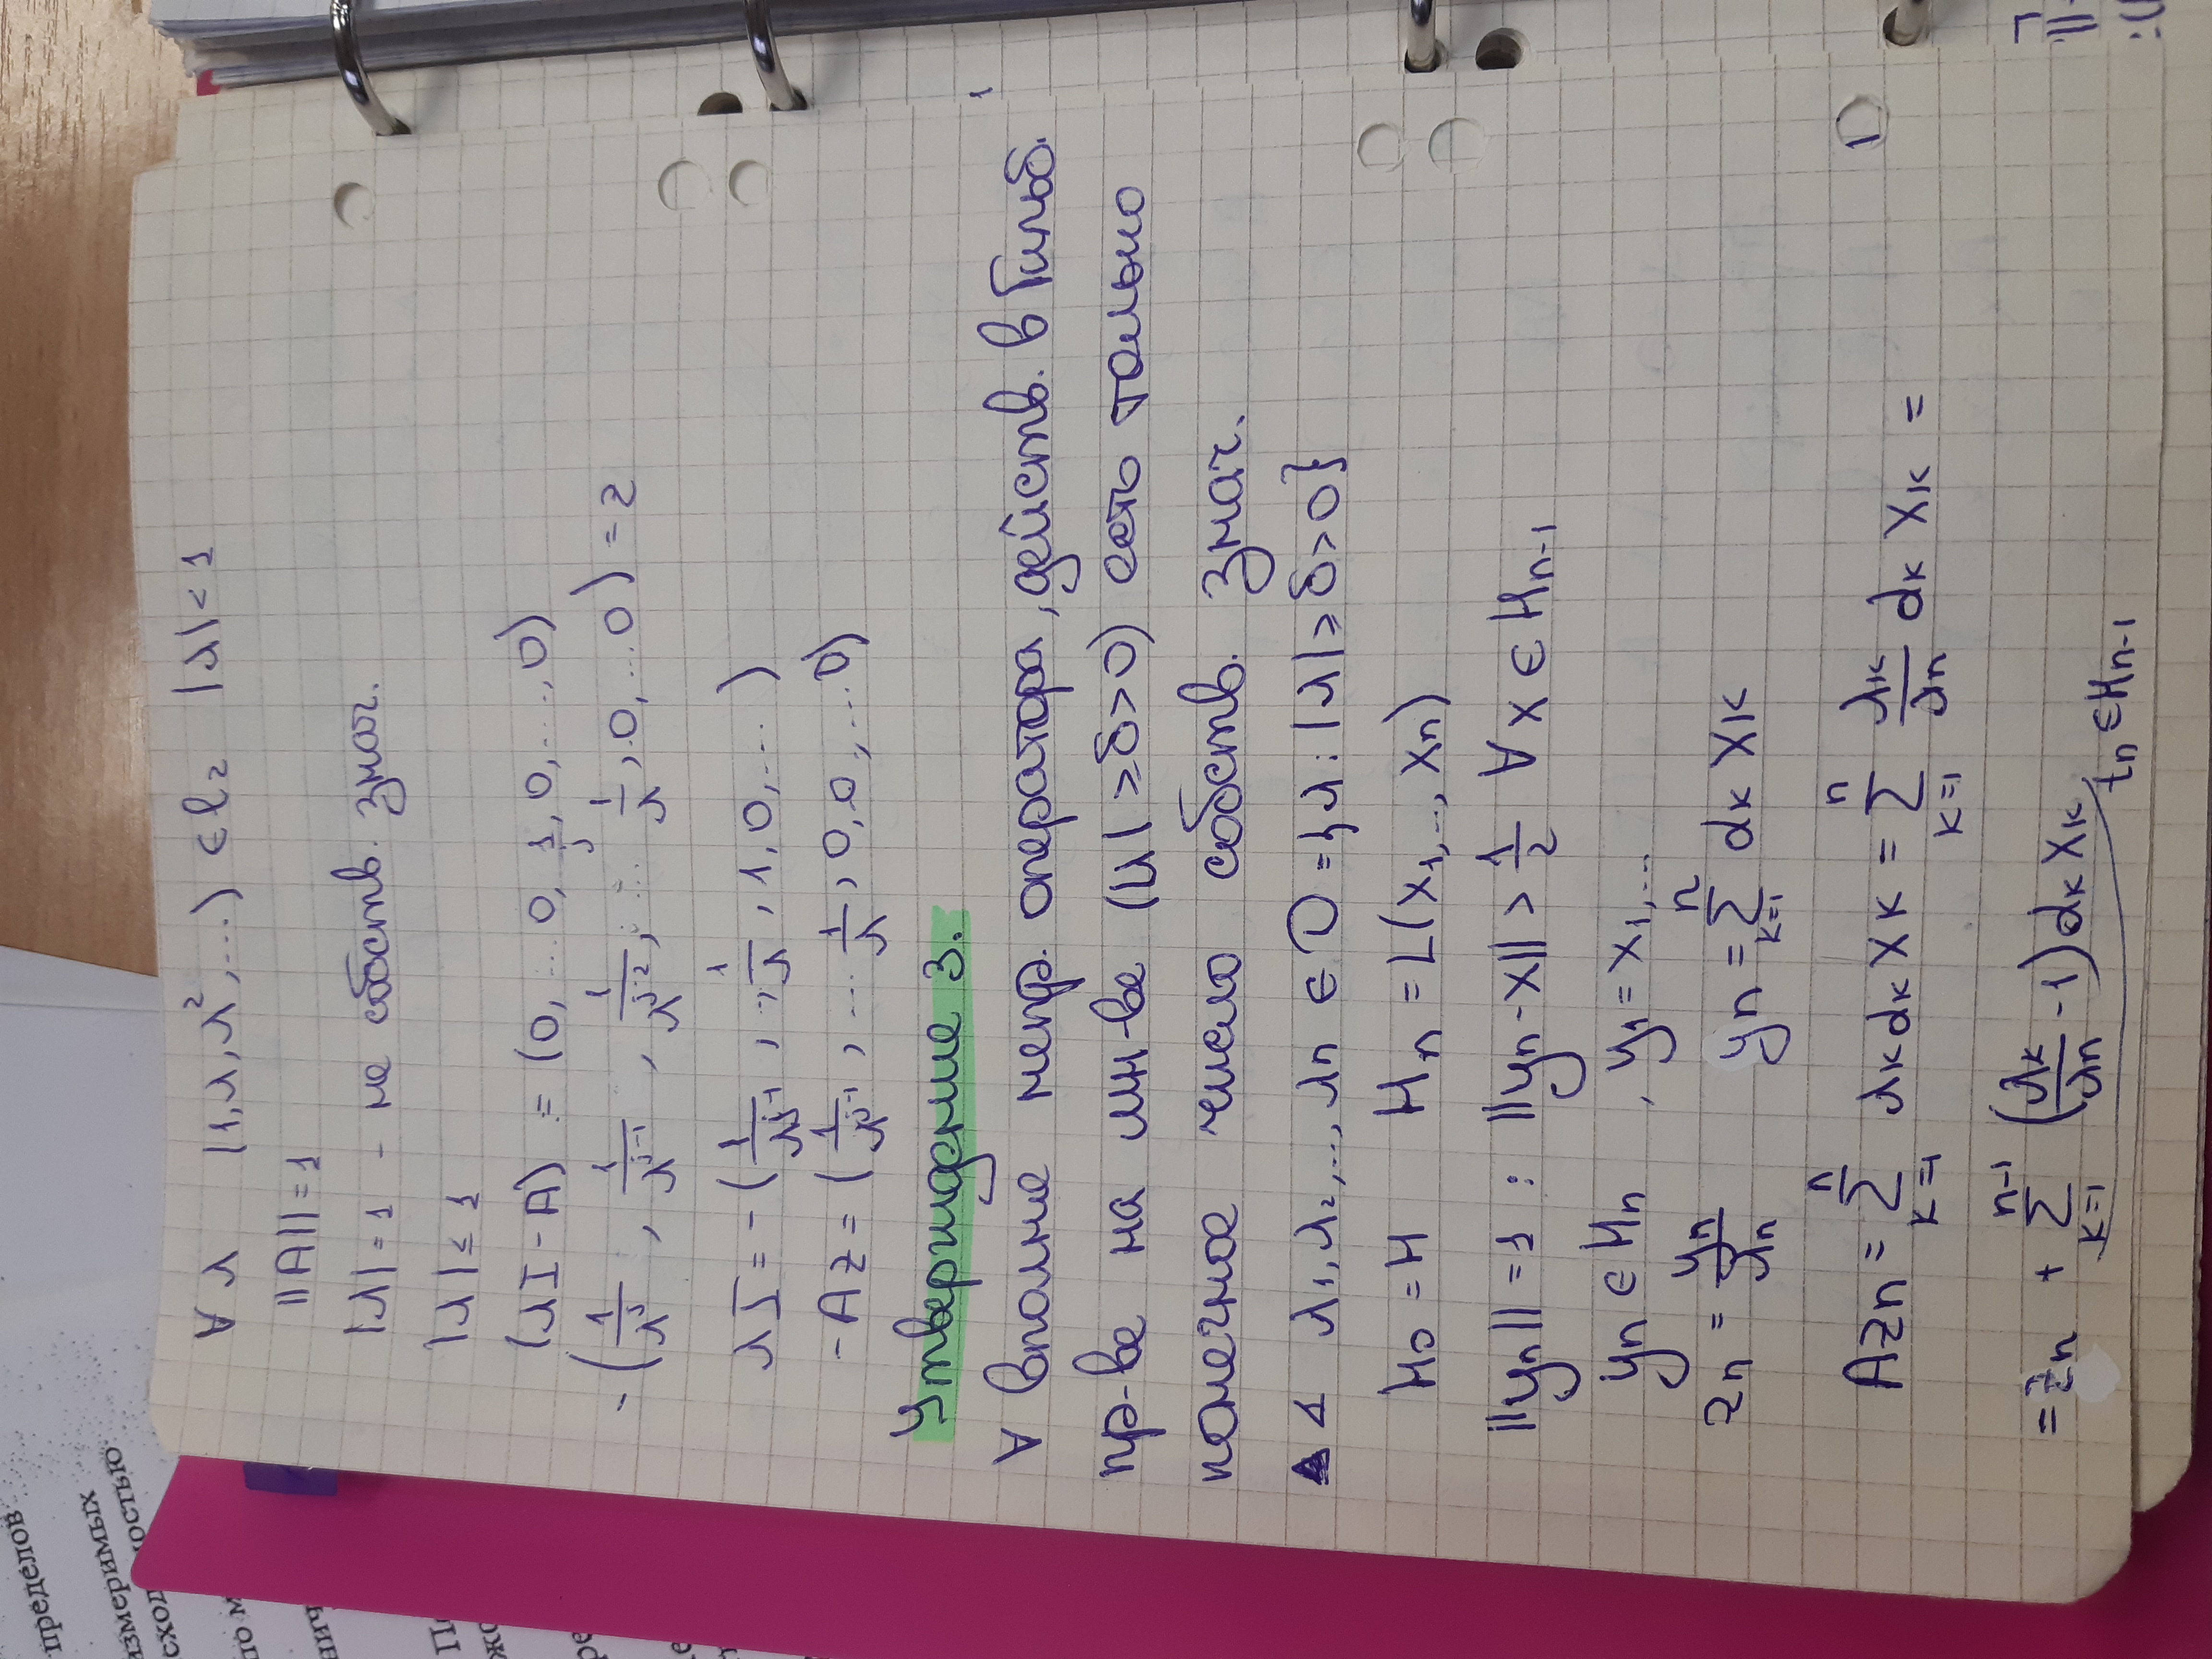 ∀ λ (1, λ, λ², ...) ∈ l₂ |λ| < 1
||A|| = 1
|λ| = 1 - не собств. знач.
|λ| ≤ 1
(λI - A) := (0, ... 0, 1, 0, ..., 0)
j
λI = - (
, 1, 0, ...)
-Az = (
, 0, 0, ... 0)
Утверждение 3.
∀ вполне непр. оператора, действ. в Гильб.
пр-ве на мн-ве (|λ| ≥ δ > 0) есть только
конечное число собств. знач.
▲ Δ λ₁, λ₂, ..., λn ∈ D = {λ: |λ| ≥ δ > 0}
H₀ = H Hn = L(x₁, ..., xn)
||yn|| = 1 : ||yn - x|| > 1/2 ∀ x ∈ Hn-1
yn ∈ Hn , y₁ = x₁, ...
zn = yn/λn yn = ∑_{k=1}^{n} dk xk
Azn = ∑_{k=1}^{n} λk dk xk = ∑_{k=1}^{n} λk/λn dk xk =
= zn + ∑_{k=1}^{n-1} (λk/λn - 1) dk xk
tn ∈ Hn-1
пределов
измеримых
ностью
сход
по м